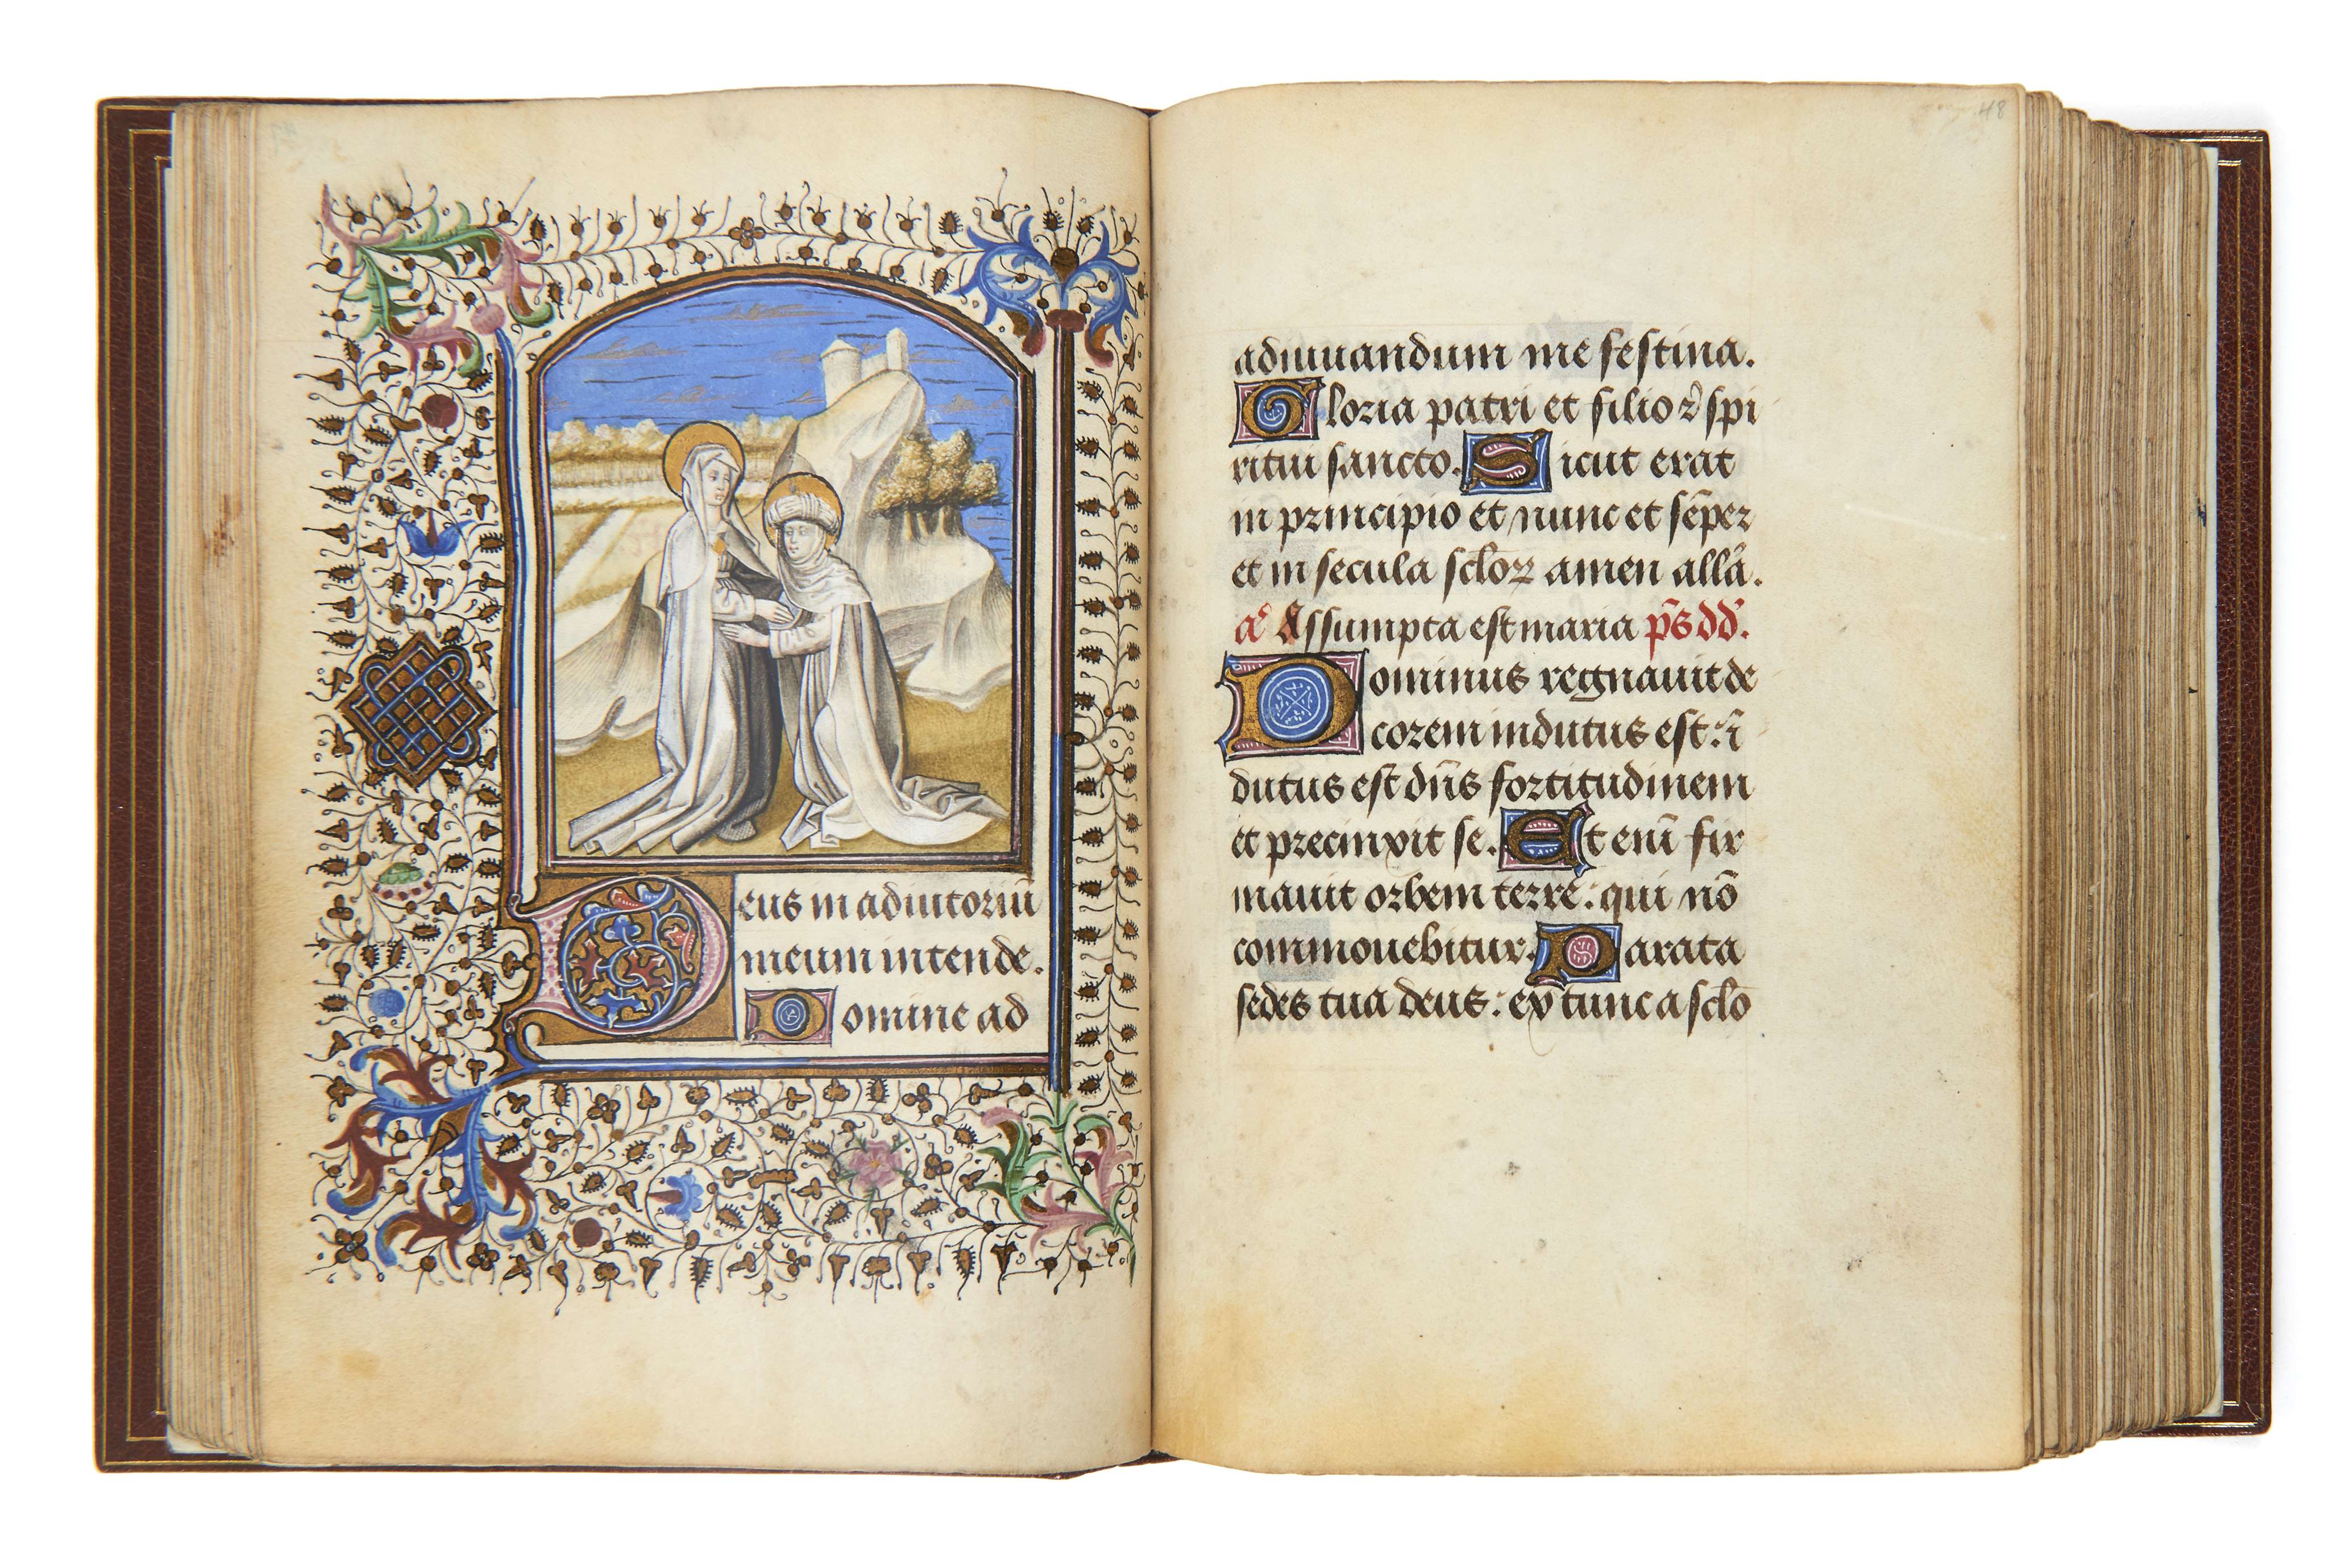 Deus in adiutoriū
meum intende.
Domine ad
48
adiuuandum me festina.
Gloria patri et filio ꝛ̄ spi
ritui sancto. Sicut erat
in principio et nunc et sēper
et in secula sc̄loꝝ amen all̄a.
an̄ Assumpta est maria p̄s dd̄.
Dominus regnauit de
corem indutus est: ī
dutus est dn̄s fortitudinem
et precinxit se. Et enī fir
mauit orbem terre: qui nō
commouebitur. Parata
sedes tua deus: ex tunc a sc̄lo